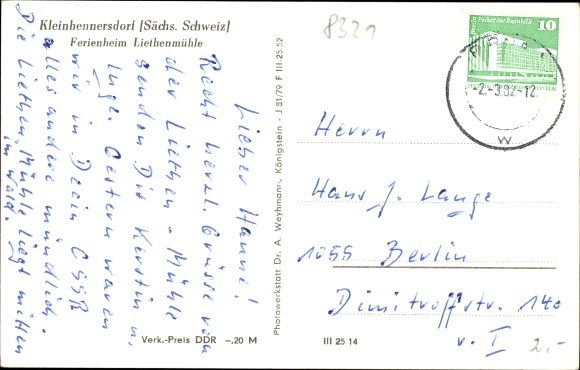 Kleinhennersdorf [Sächs. Schweiz]
Ferienheim Liethenmühle
Lieber Hanne!
Recht herzl. Grüsse von
der Liethen-Mühle
senden Dir Kerstin u.
Inge. Gestern waren
wir in Decin CSSR
alles andere mündlich.
Die Liethen-Mühle liegt mitten
im Wald.
Verk.-Preis DDR -,20 M
Photowerkstatt Dr. A. Weyhmann, Königstein - J 81/79 F III 25 52
III 25 14
8321
Berlin, Palast der Republik
10
-2.-3.82-12
w
Herrn
Hans J. Lange
1055 Berlin
Dimitroffstr. 140
v. I
2.-